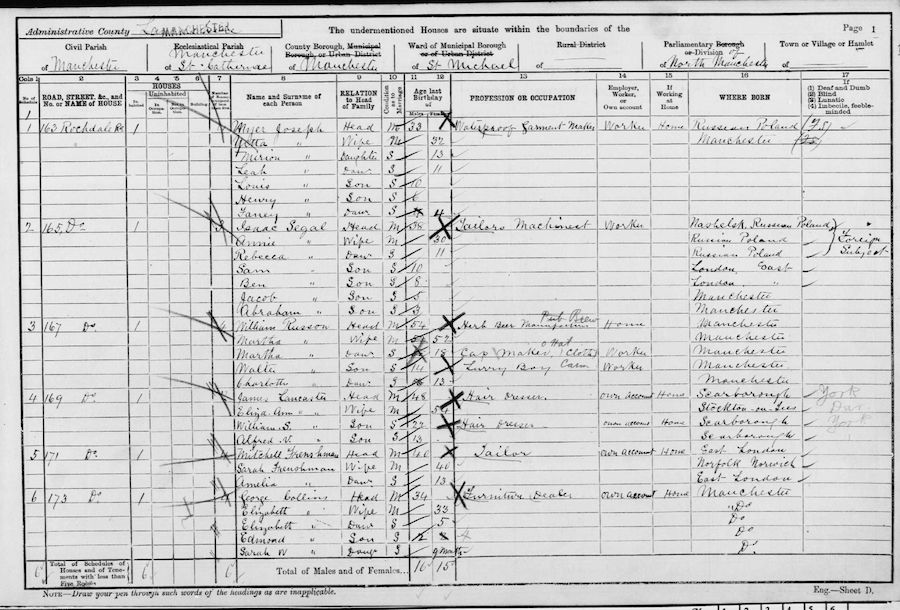 Administrative County LANCHESTER The undermentioned Houses are situate within the boundaries of the Page 1
Civil Parish of Manchester
Ecclesiastical Parish of Manchester St Catherines
County Borough, Municipal Borough, or Urban District of Manchester
Ward of Municipal Borough or of Urban District of St Michael
Rural District of
Parliamentary Borough or Division of of North Manchester
Town or Village or Hamlet of
Cols. 1 2 3 4 5 6 7 8 9 10 11 12 13 14 15 16 17
No. of Schedule ROAD, STREET, &c., and No. or NAME of HOUSE HOUSES Inhabited Uninhabited In Occupation Not in Occupation Building Name and Surname of each Person RELATION to Head of Family Condition as to Marriage Age last Birthday of Males Females PROFESSION OR OCCUPATION Employer, Worker, or Own account If Working at Home WHERE BORN If (1) Deaf and Dumb (2) Blind (3) Lunatic (4) Imbecile, feeble-minded
1 163 Rochdale Rd 1 Myer Joseph Head M 33 Waterproof Garment Maker Worker Home Russian Poland (F.S)
Wife M 32 Manchester
Mirion " Daughter S 13
Leah " Daur S 11
Louis " Son S 10
Henry " Son S 6
Fanny " Daur S 4
2 165, Do 1 Isaac Segal Head M 38 Tailors Machinest Worker Nashelsk, Russian Poland
Annie " Wife M 30 Russian Poland Foreign
Rebecca " Daur S 11 Russian Poland Subject
Sam " Son S 10 London, East
Ben " Son S 8 London "
Jacob " Son S 5 Manchester
Abraham " Son S 3 Manchester
3 167 Do 1 William Russon Head M 54 Herb Beer Pub Brew Home Manchester
Martha " Wife M 52 Manchester
Martha " Daur S 18 Cap Maker, o Hat (Cloth) Worker Manchester
Walter " Son S 14 Lurry Boy Carm Worker Manchester
Charlotte " Daur S 13 Manchester
4 169 Do 1 James Lancaster Head M 48 Hair Dresser. own account Home Scarborough York
Eliza Ann " Wife M 54 Stockton-on-Tees Dur
William S. " Son S 22 Hair Dresser own account Home Scarborough York
Alfred V. " Son S 13 Scarborough
5 171 Do 1 Mitchell Frenshman Head M 40 Tailor own account Home East London
Sarah Frenshman Wife M 40 Norfolk Norwich
Amelia " Daur S 13 East London
6 173 Do 1 George Collins Head M 34 Furniture Dealer own account Home Manchester
Elizabeth " Wife M 33 " Do
Elizabeth " Daur S 5 Do
Edmond " Son S 2 Do
Sarah W " Daur S 9 Months Do
6 Total of Schedules of Houses and of Tenements with less than Five Rooms 6 6 Total of Males and of Females... 16 15
NOTE—Draw your pen through such words of the headings as are inapplicable. Eng.—Sheet D.